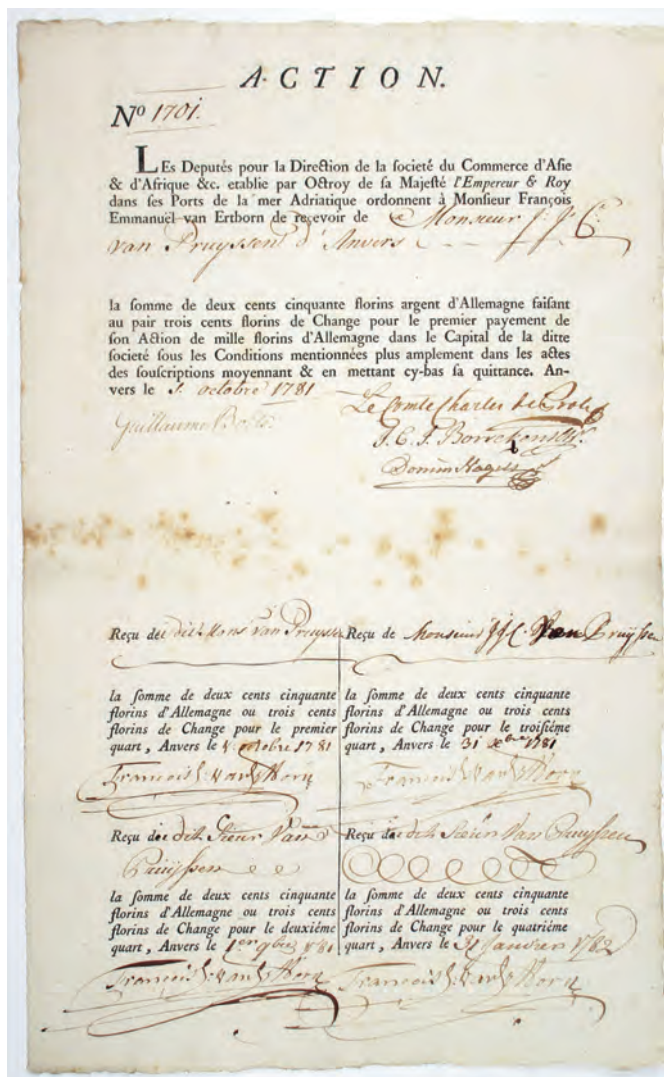 A·CTION.
Nº 1701.
LEs Deputés pour la Direction de la societé du Commerce d'Asie
& d'Afrique &c. etablie par Octroy de sa Majesté l'Empereur & Roy
dans ses Ports de la mer Adriatique ordonnent à Monsieur François
Emmanuël van Ertborn de reçevoir de Monsieur J. J. C.
van Pruyssen d'Anvers
la somme de deux cents cinquante florins argent d'Allemagne faisant
au pair trois cents florins de Change pour le premier payement de
son Action de mille florins d'Allemagne dans le Capital de la ditte
societé sous les Conditions mentionnées plus amplement dans les actes
des souscriptions moyennant & en mettant cy-bas sa quittance. An-
vers le octobre 1781
Guillaume Bolts
Le Comte Charles de Proli
J. C. J. Borrekens
Domin Nagels
Reçu de dit Mons van Pruyssen
la somme de deux cents cinquante
florins d'Allemagne ou trois cents
florins de Change pour le premier
quart, Anvers le octobre 1781
Reçu de Monsieur J. J. C. Van Pruyssen
la somme de deux cents cinquante
florins d'Allemagne ou trois cents
florins de Change pour le troisiéme
quart, Anvers le 31 Xbre 1781
Reçu de dit Sieur Van
Pruyssen
la somme de deux cents cinquante
florins d'Allemagne ou trois cents
florins de Change pour le deuxiéme
quart, Anvers le 1er 9bre 1781
Reçu de dit Sieur Van Pruyssen
la somme de deux cents cinquante
florins d'Allemagne ou trois cents
florins de Change pour le quatriéme
quart, Anvers le 31 Janvier 1782